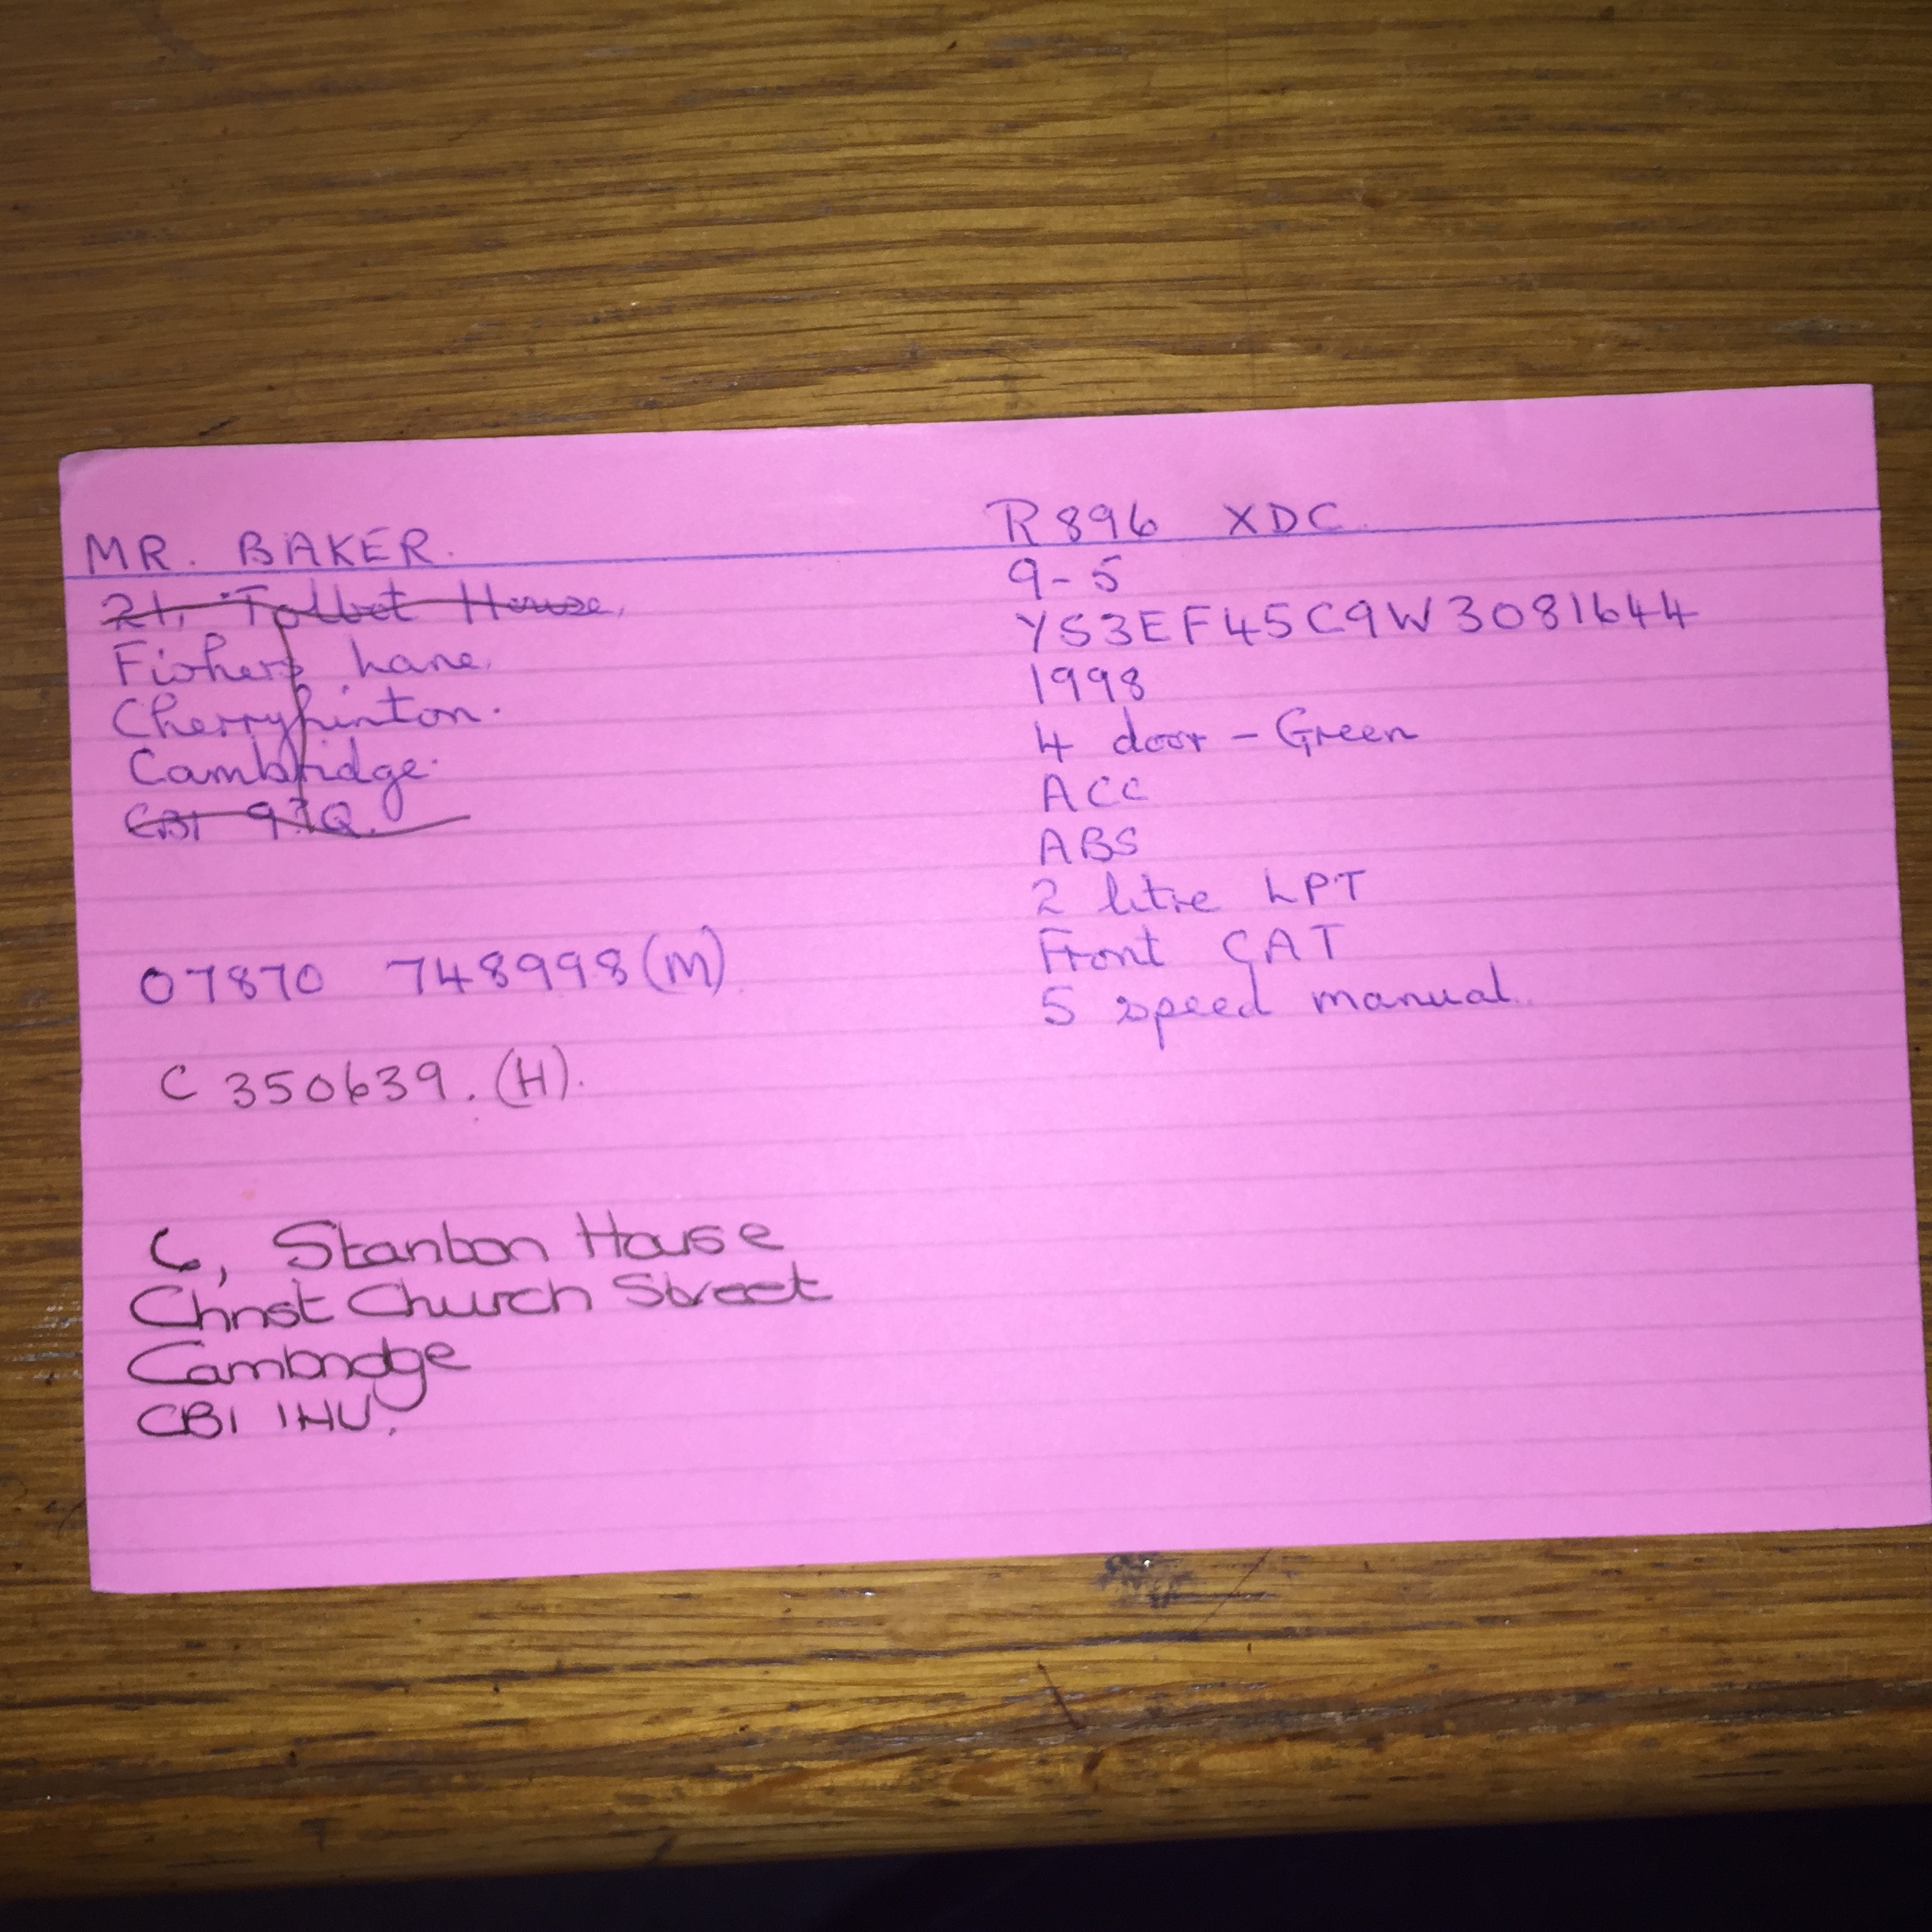 MR. BAKER.
R896 XDC
21, Talbot House,
Fishers Lane,
Cherryhinton.
Cambridge.
CB1
07870 748998 (M)
C 350639. (H).
6, Stanton House
Christ Church Street
Cambridge
CB1 1HU.
9-5
YS3EF45C9W3081644
1998
4 door - Green
ACC
ABS
2 litre LPT
Front GAT
5 speed manual.